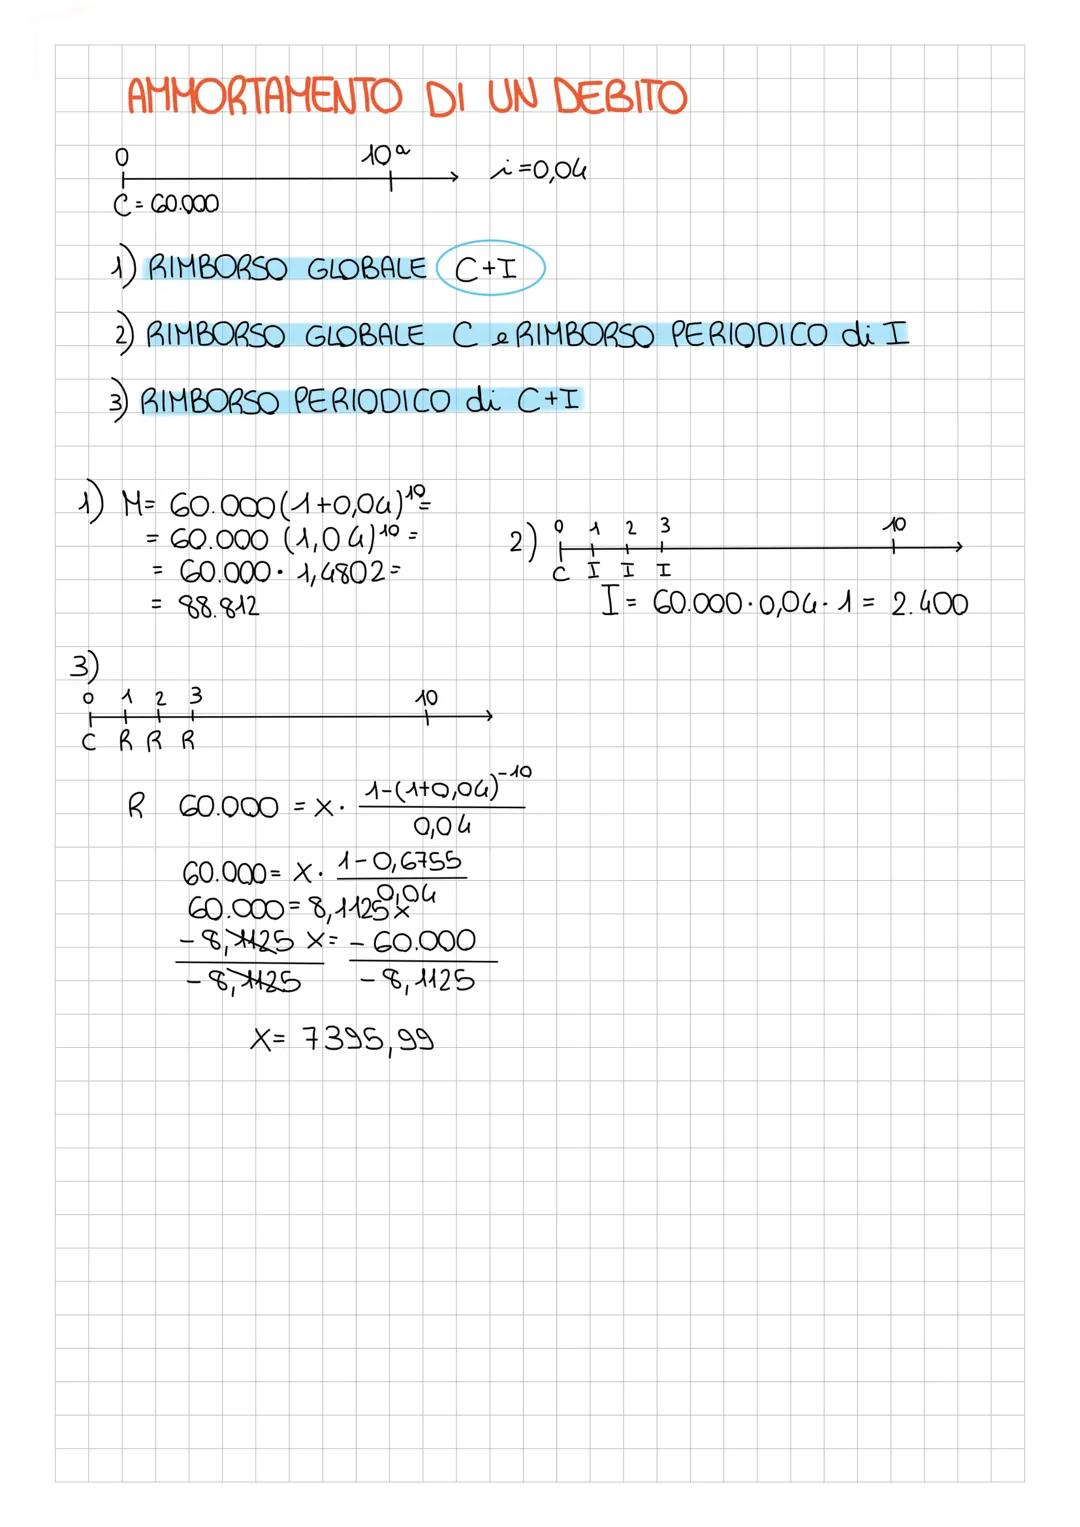 AMMORTAMENTO DI UN DEBITO
0 10ᵃ i=0,04
C = 60.000
1) RIMBORSO GLOBALE C+I
2) RIMBORSO GLOBALE C e RIMBORSO PERIODICO di I
3) RIMBORSO PERIODICO di C+I
1) M= 60.000(1+0,04)¹⁰=
= 60.000 (1,04)¹⁰ =
= 60.000· 1,4802=
= 88.812
2) 0 1 2 3 10
C I I I
I= 60.000·0,04·1= 2.400
3)
0 1 2 3 10
C R R R
R 60.000 = x· 1-(1+0,04)⁻¹⁰
0,04
60.000= x· 1-0,6755
0,04
60.000= 8,1125x
-8,1125 x= -60.000
-8,1125 -8,1125
x= 7395,99